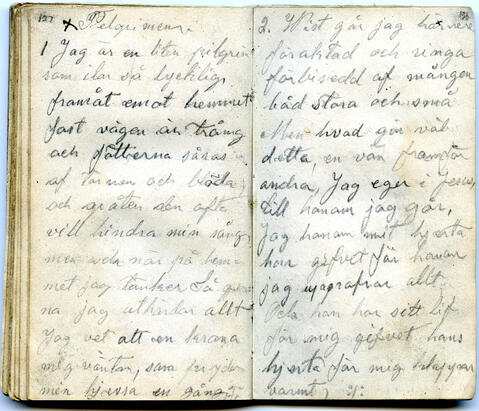 127
x Pilgrimen.
1 Jag är en liten pilgrim
som ilar så lyckligt
framåt emot hemmet
fast vägen är trång
och fötterna såras
af törnen och blöda
och gråten den ofta
vill hindra min sång
men när på hem-
met jag tänker Så gär-
na jag uthärdar allt
Jag vet att en krona
mig väntar, som pryder
min hjessa en gång.
128
2. Visst går jag här nere
föraktad och ringa
förbisedd af mången
båd stora och små
Men hvad gör väl
detta, en vän framför
andra, Jag eger i Jesus,
till honom jag går,
Jag honom mitt hjerta
har gifvet för honom
jag uppoffrar allt
Och han har sitt lif
för mig gifvet hans
hjerta för mig klappar
varmt